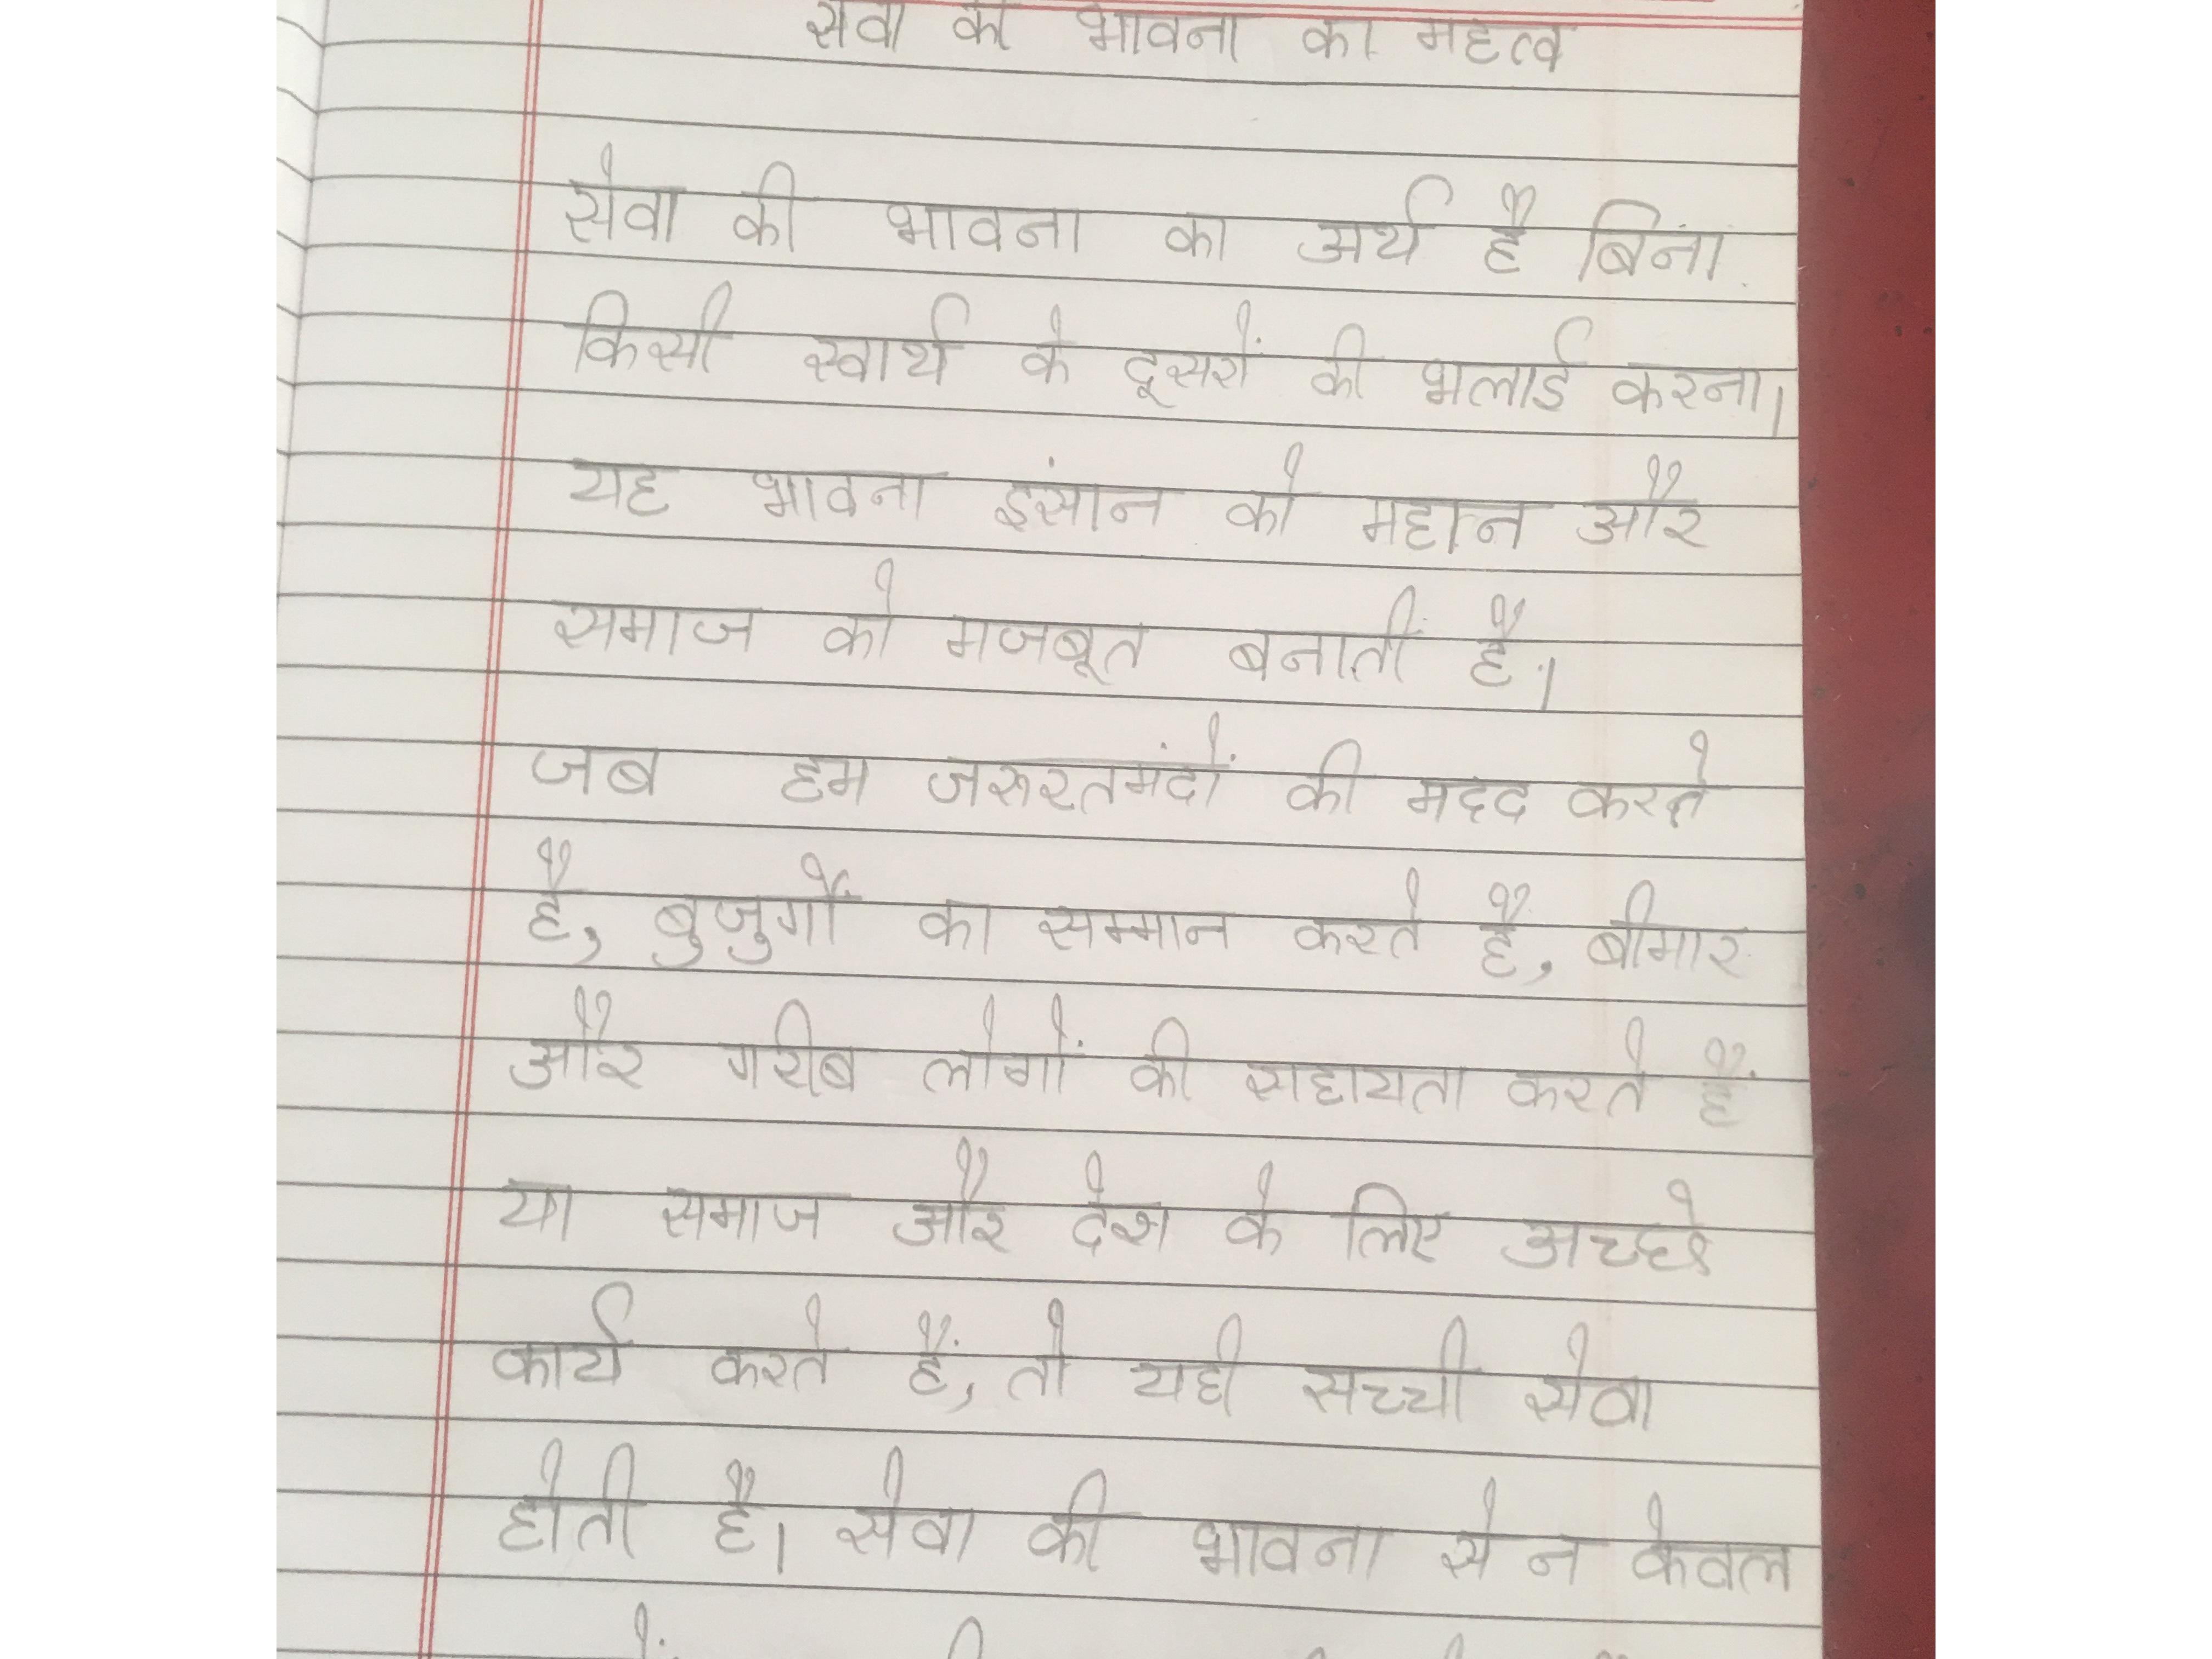 सेवा की भावना का महत्व
सेवा की भावना का अर्थ है बिना
किसी स्वार्थ के दूसरों की भलाई करना।
यह भावना इंसान को महान और
समाज को मजबूत बनाती है।
जब हम जरुरतमंदों की मदद करते
है, बुजुर्गों का सम्मान करते हैं, बीमार
और गरीब लोगों की सहायता करते हैं
या समाज और देश के लिए अच्छे
कार्य करते हैं, तो यही सच्ची सेवा
होती है। सेवा की भावना से न केवल